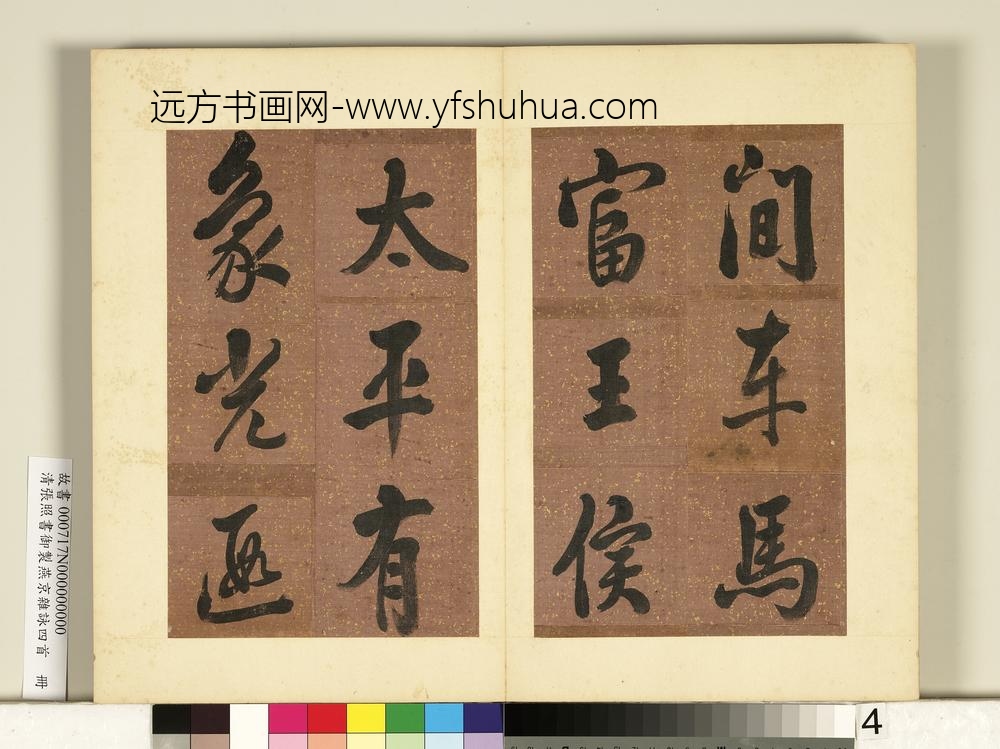 远方书画网-www.yfshuhua.com
間車馬
富王侯
太平有
象光
故書 000717N000000000
清張照書御製燕京雜詠四首 冊
4